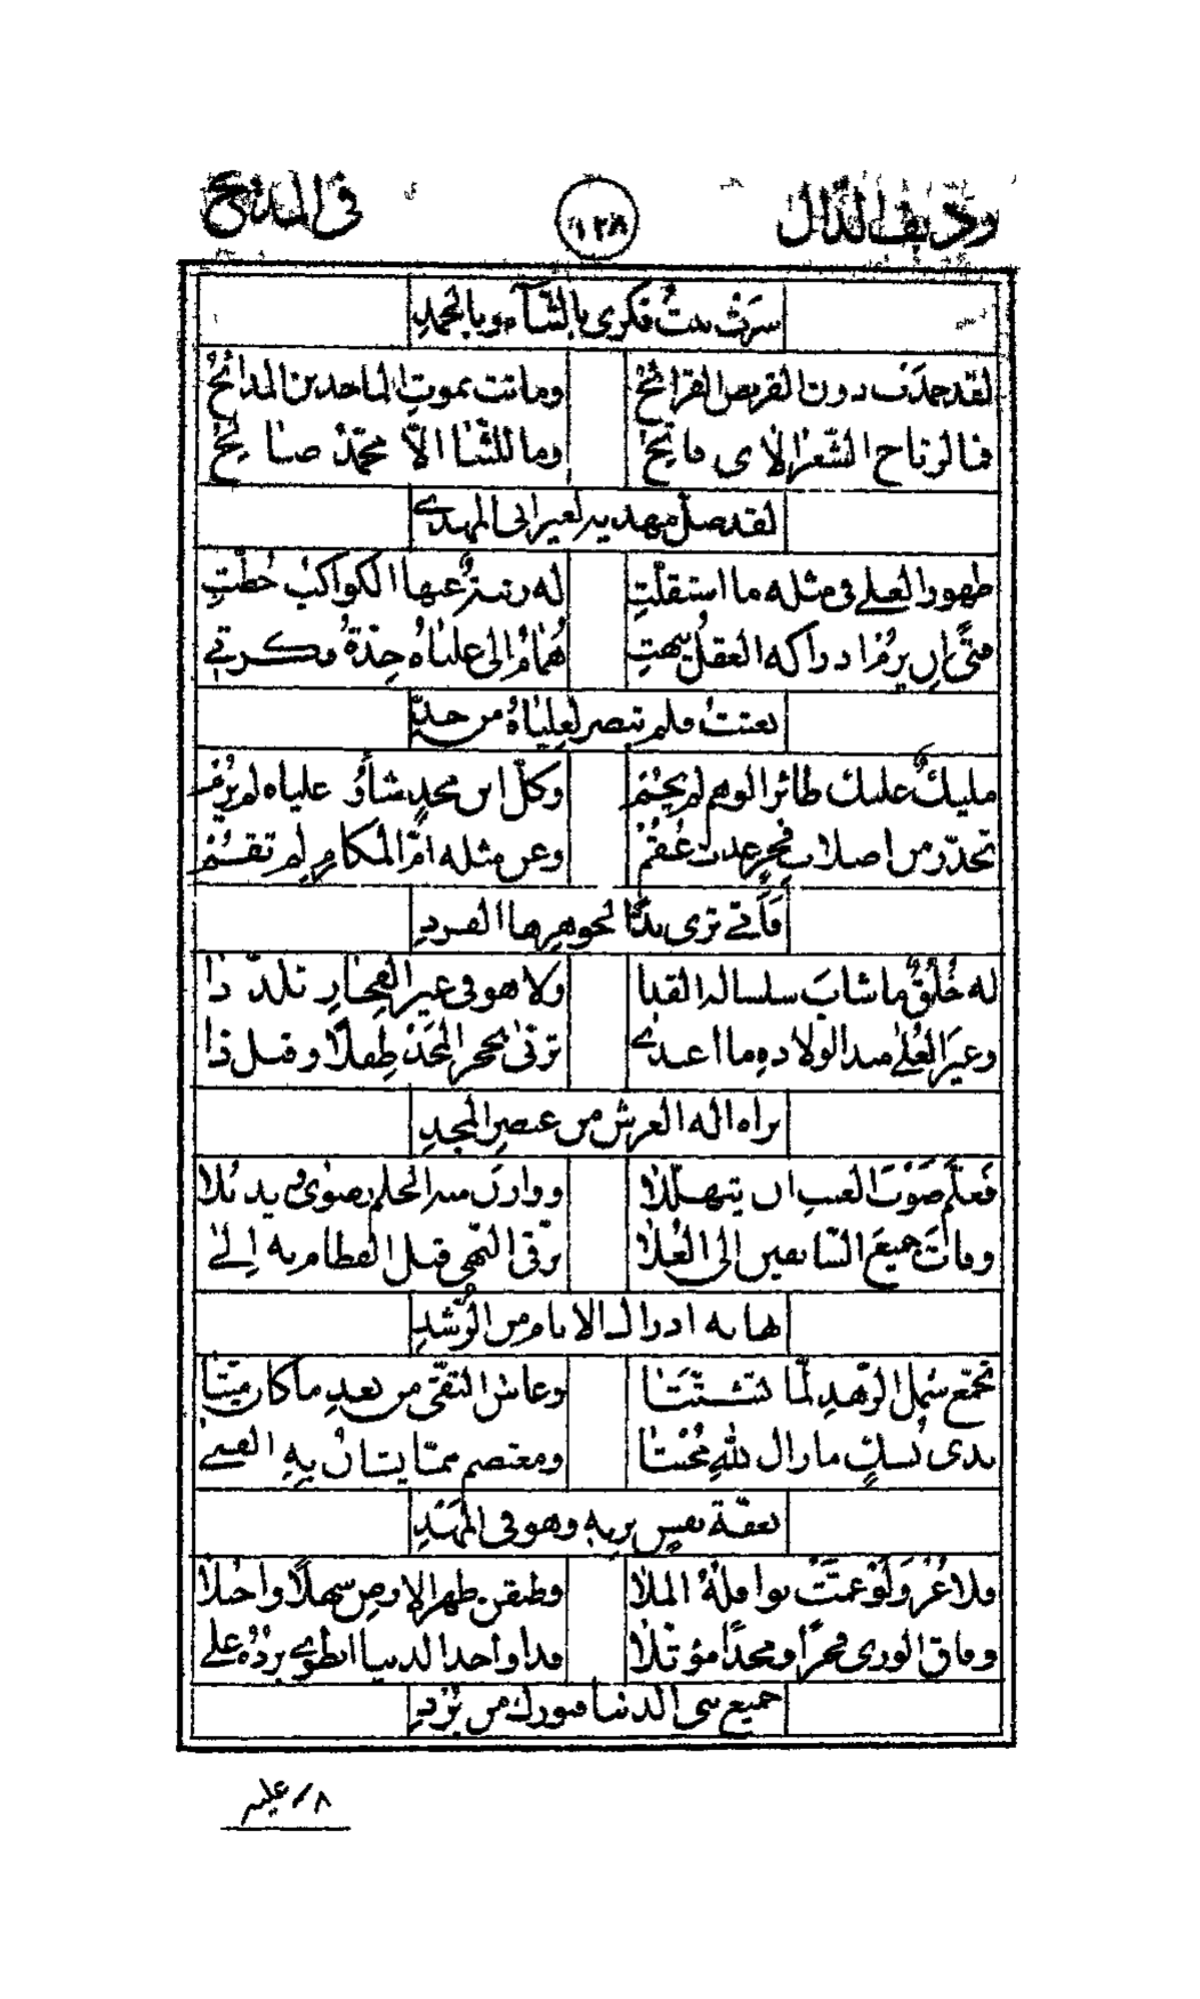 رديف الدال ١٢٨ في المديح
سرت بنت فكري بالثناء وبالحمد
لقد جمدت دون القريض القرائح وماتت بموت الماجدين المدائح
فما لرتاج الشعر الاي فاتح وما للثنا الا محمد صالح
لقد ضل مهديه لغير ابى المهدي
طهور العلى في مثله ما استقلت له رتبة عنها الكواكب حطت
متى ان يرم ادراكه العقل يبهت همام الى علياه حدة فكرتي
بعثت فلم تبصر لعلياه من حد
مليك عليك طائر الوهم لم يحم وكل ابن مجد شأو علياه لم يرم
تحدر من اصلاب فخر غدت عقم وعن مثله ام المكارم لم تقم
فأنى ترى ندا لجوهرها الفرد
له خلق ما شاب سلساله القذا ولا هو في غير الفخار تلذذا
وغير العلى مبدا الولادة ما اغتدى ترقى بحجر المجد طفلا وقبل ذا
براه اله العرش من عنصر المجد
فعلم صوب السحب ان يتهللا ووازن منه الحلم رضوى ويذبلا
وفات جميع السابقين الى العلا ترقى النهى قبل الفطام به الى
نهاية ادراك الانام من الرشد
تجمع شمل الزهد لما تشتتا وعاش التقى من بعد ما كان ميتا
بدى نسك ما زال لله مخبتا ومعتصم مما يشان به الفتى
بعفة نفس بريه وهو في المهد
فلا غرو لو عمت نوافله الملا وطبقن ظهر الارض سهلا واجبلا
وفاق الورى فخرا ومجدا مؤثلا فذا واحد الدنيا انطوى برده على
جميع بني الدنيا فبورك من برد